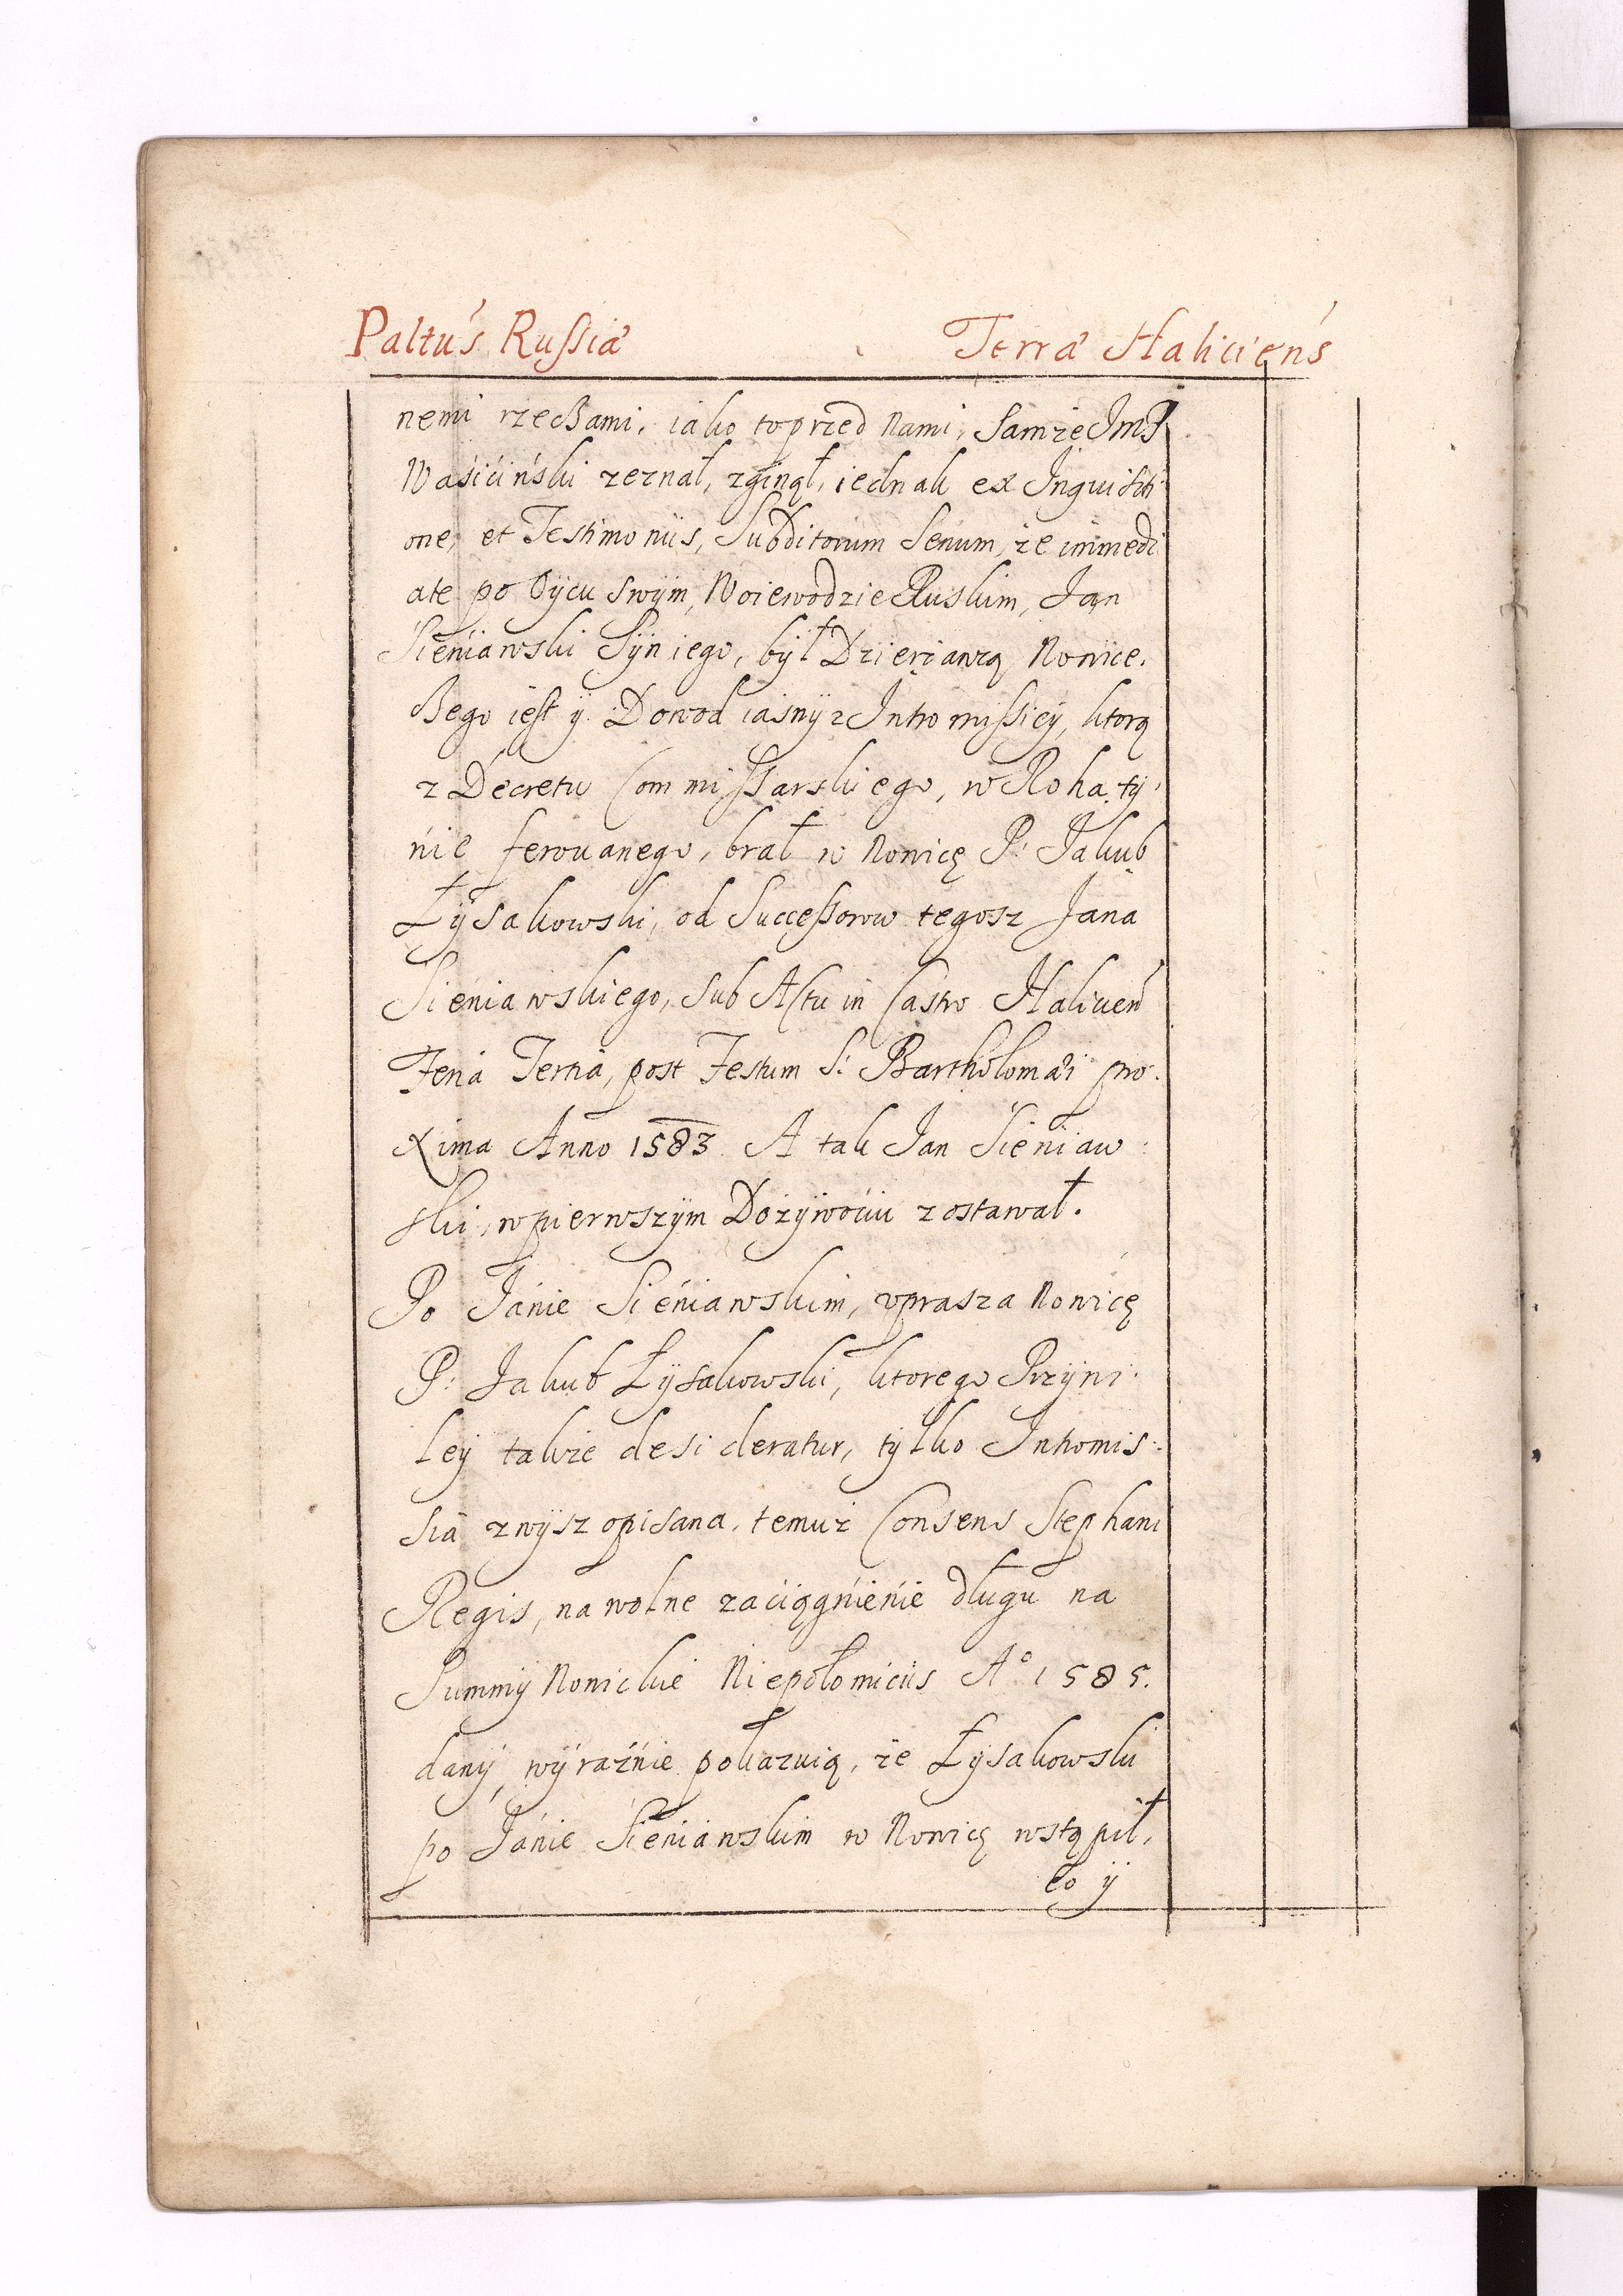 Paltús Russiæ Terræ Haliciens
nemi rzeczami, iako to przed Nami, samże ImP
Waśiciński zeznał, zginął, iednak ex Inquisiti
one, et Testimoniis, Subditorum Senum, że immedi
ate po Oÿcu swÿm, Woiewodzie Ruskim, Jan
Sieniawski Sÿn iego, bÿł Dzierżawcą Nowice.
Czego iest ÿ Dowod iasnÿ z Intromissiey, ktorą
z Decretu Commissarskiego, w Rohatÿ,
nie ferowanego, brał w Nowicę P: Jakub
Łÿsakowski, od Successorow tegosz Jana
Sieniawskiego, sub Actu in Castro Halicen
Feria Tertia, post Festum S: Bartholomæi pro.
xima Anno 1583. A tak Jan Sieniaw:
ski, w pierwszÿm Dożÿwociu zostawał.
Po Janie Sieniawskim, vprasza Nowicę
P: Jakub Łÿsakowski, ktorego Przÿwi:
leÿ także desideratur, tÿlko Intromis:
sia zwÿsz opisana, temuż Consens Stephani
Regis, na wolne zaciągnienie długu na
Summÿ Nowickie Niepołomiciis A° 1585.
danÿ, wÿraźnie pokazuią, że Łÿsakowski
po Janie Sieniawskim w Nowicę wstąpił,
co ÿ